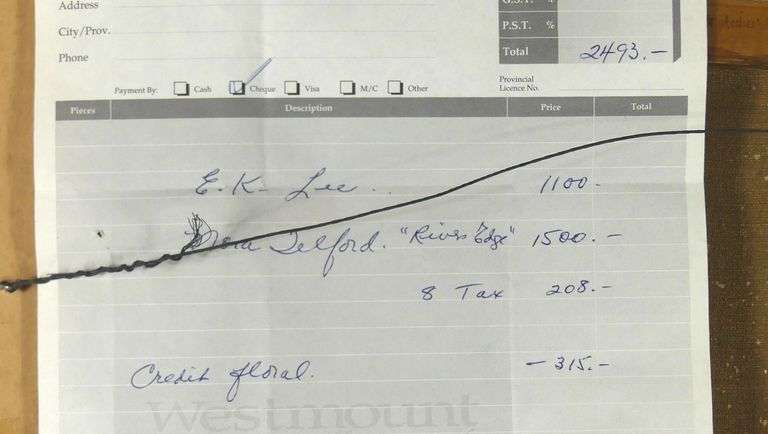 Address
City/Prov.
Phone
G.S.T. %
P.S.T. %
Total 2493.-
Payment By: Cash Cheque Visa M/C Other
Provincial
Licence No.
Pieces Description Price Total
E.K. Lee 1100-
Telford. "River Edge" 1500.-
8 Tax 208.-
Credit floral. -315.-
Westmount